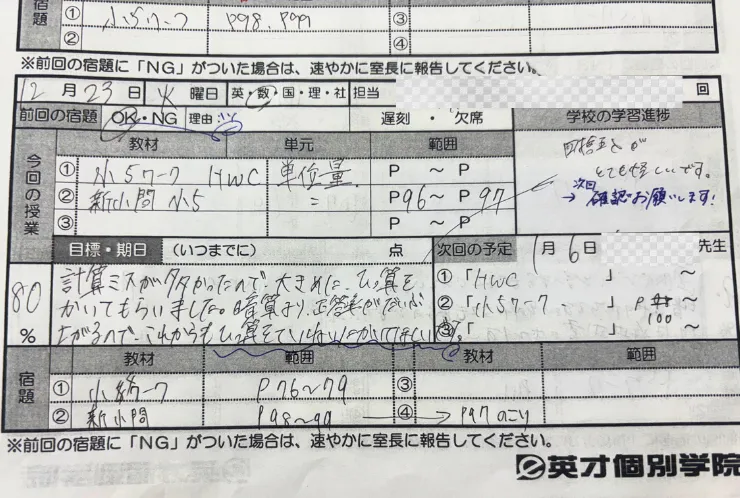 宿題 ① 小5ワーク P98. P99 ③
② ④
※前回の宿題に「NG」がついた場合は、速やかに室長に報告してください。
12月23日 火曜日 英・数・国・理・社 担当 回
前回の宿題 OK・NG 理由 遅刻・欠席 学校の学習進捗
今回の授業 教材 単元 範囲
① 小5ワーク HWC 単位量 P ～ P
② 新小問 小5 〃 P96～P97
③ P ～ P
四捨五入が
とても怪しいです。
次回
→ 確認お願いします!
目標・期日 (いつまでに) 点 次回の予定 1月6日 先生
80%
計算ミスが多かったので、大きめに、ひっ算を
かいてもらいました。暗算より、正答率がだいぶ
上がるので、これからもひっ算をていねいにかいてほしい
①「HWC 」 ～
②「小5ワーク 」 P 100 ～
③「 」 ～
宿題 教材 範囲 教材 範囲
① P76～79 ③
② 新小問 P98～99 ④ → P97のこり
※前回の宿題に「NG」がついた場合は、速やかに室長に報告してください。
e英才個別学院